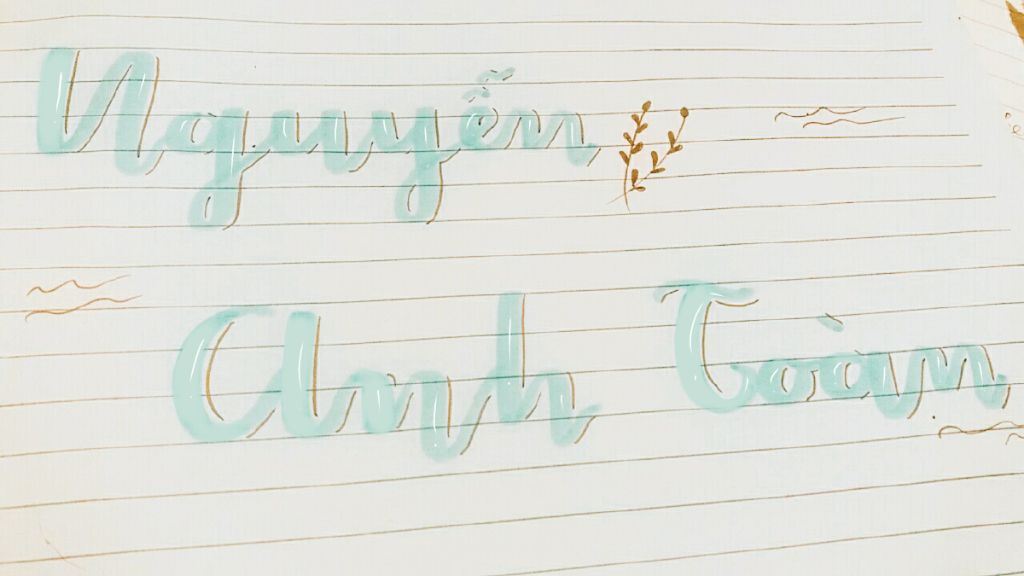 Nguyễn
Anh Toàn